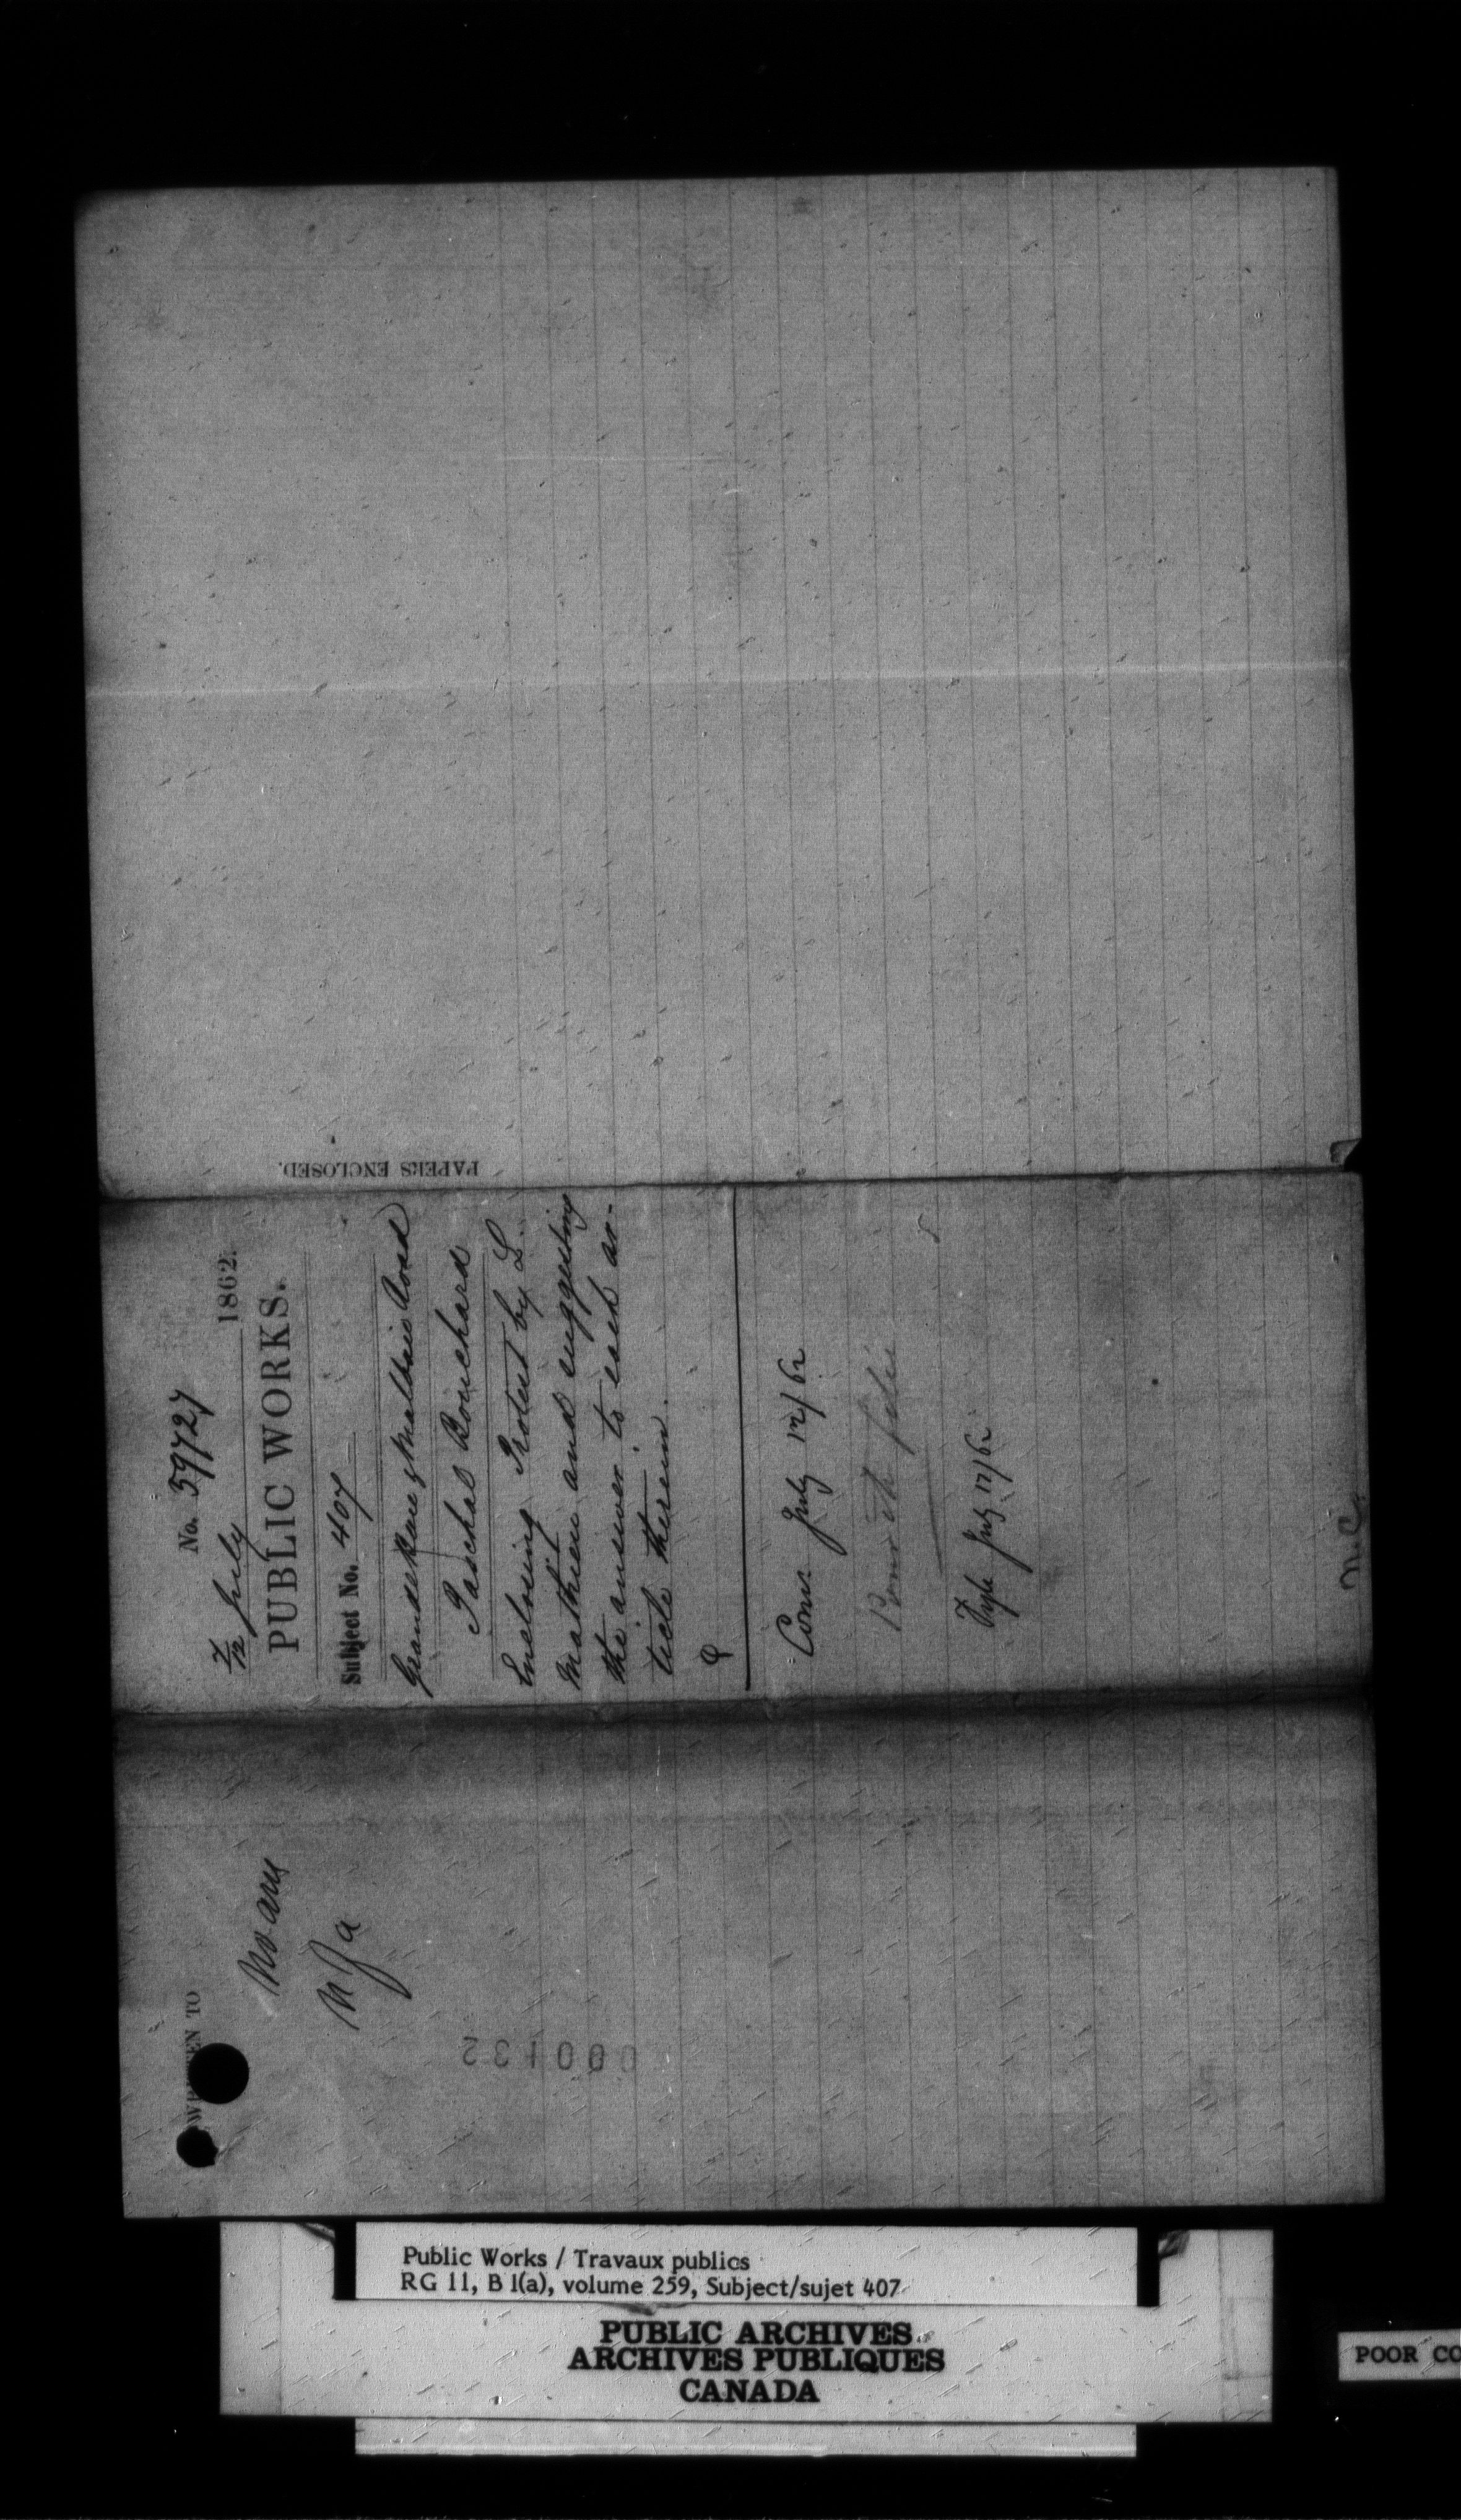 No. 59727
7/12 July 1862.
PUBLIC WORKS.
Subject No. 407
Grande Baie & Malbaie Road
Paschal Bouchard
Enclosing Protest by L.
Mathieu and suggesting
the answer to each ar-
ticle therein.
Comr. July 12/62
Fyle July 17/62
PAPERS ENCLOSED.
WRITTEN TO
No ans
000132
Public Works / Travaux publics
RG 11, B 1(a), volume 259, Subject/sujet 407
PUBLIC ARCHIVES
ARCHIVES PUBLIQUES
CANADA
POOR CO